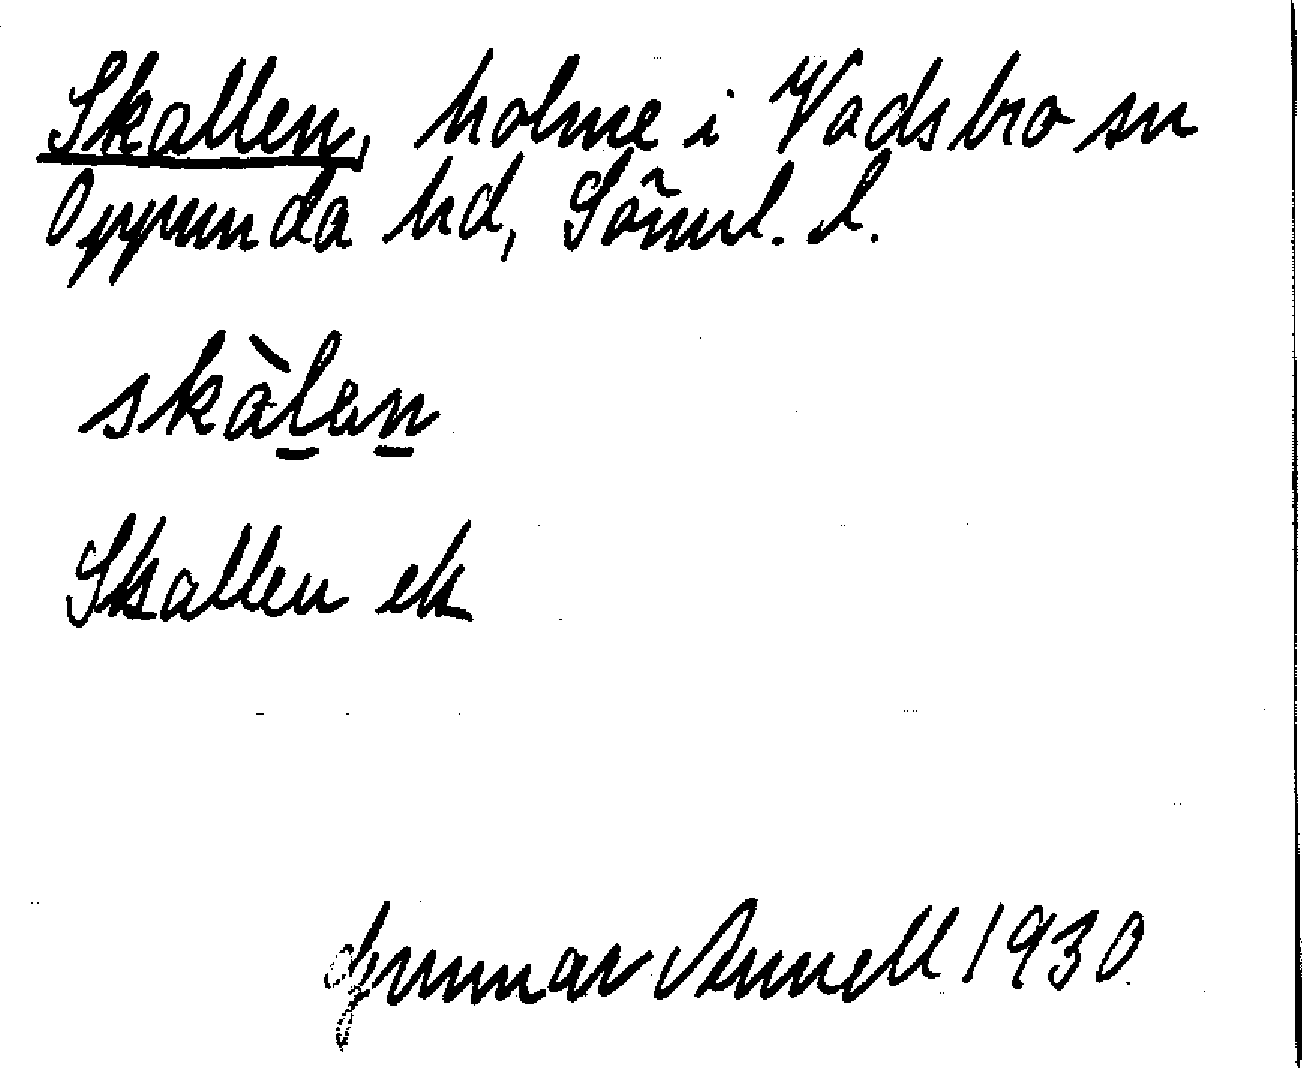 Skallen, holme i Vadsbro sn
Oppunda hd, Söml. l.
skàlen
Skallen ek
Gunnar Annell 1930